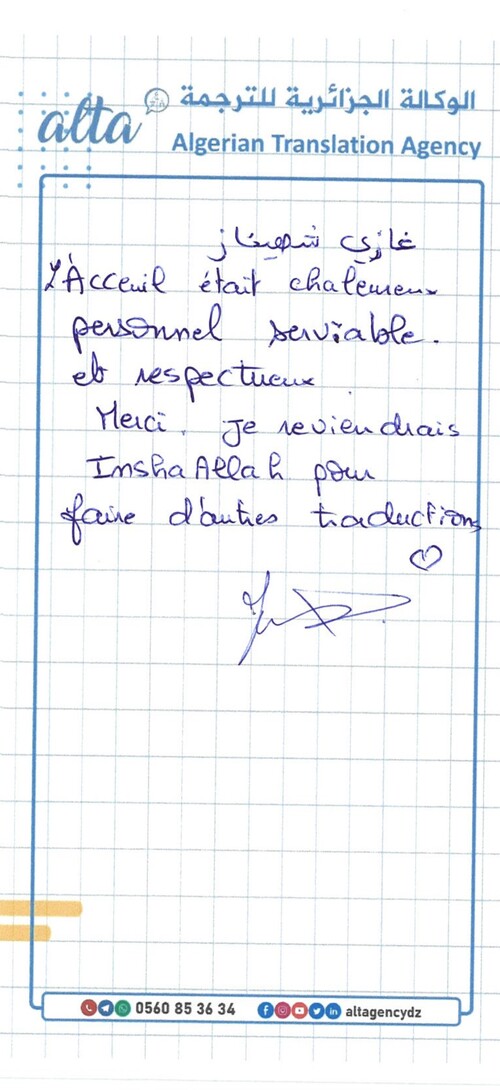 alta
الوكالة الجزائرية للترجمة
Algerian Translation Agency
غازي شهيناز
L'Acceuil était chaleureux
personnel serviable.
et respectueux
Merci. Je reviendrais
InshaAllah pour
faire d'autres traductions
0560 85 36 34 altagencydz